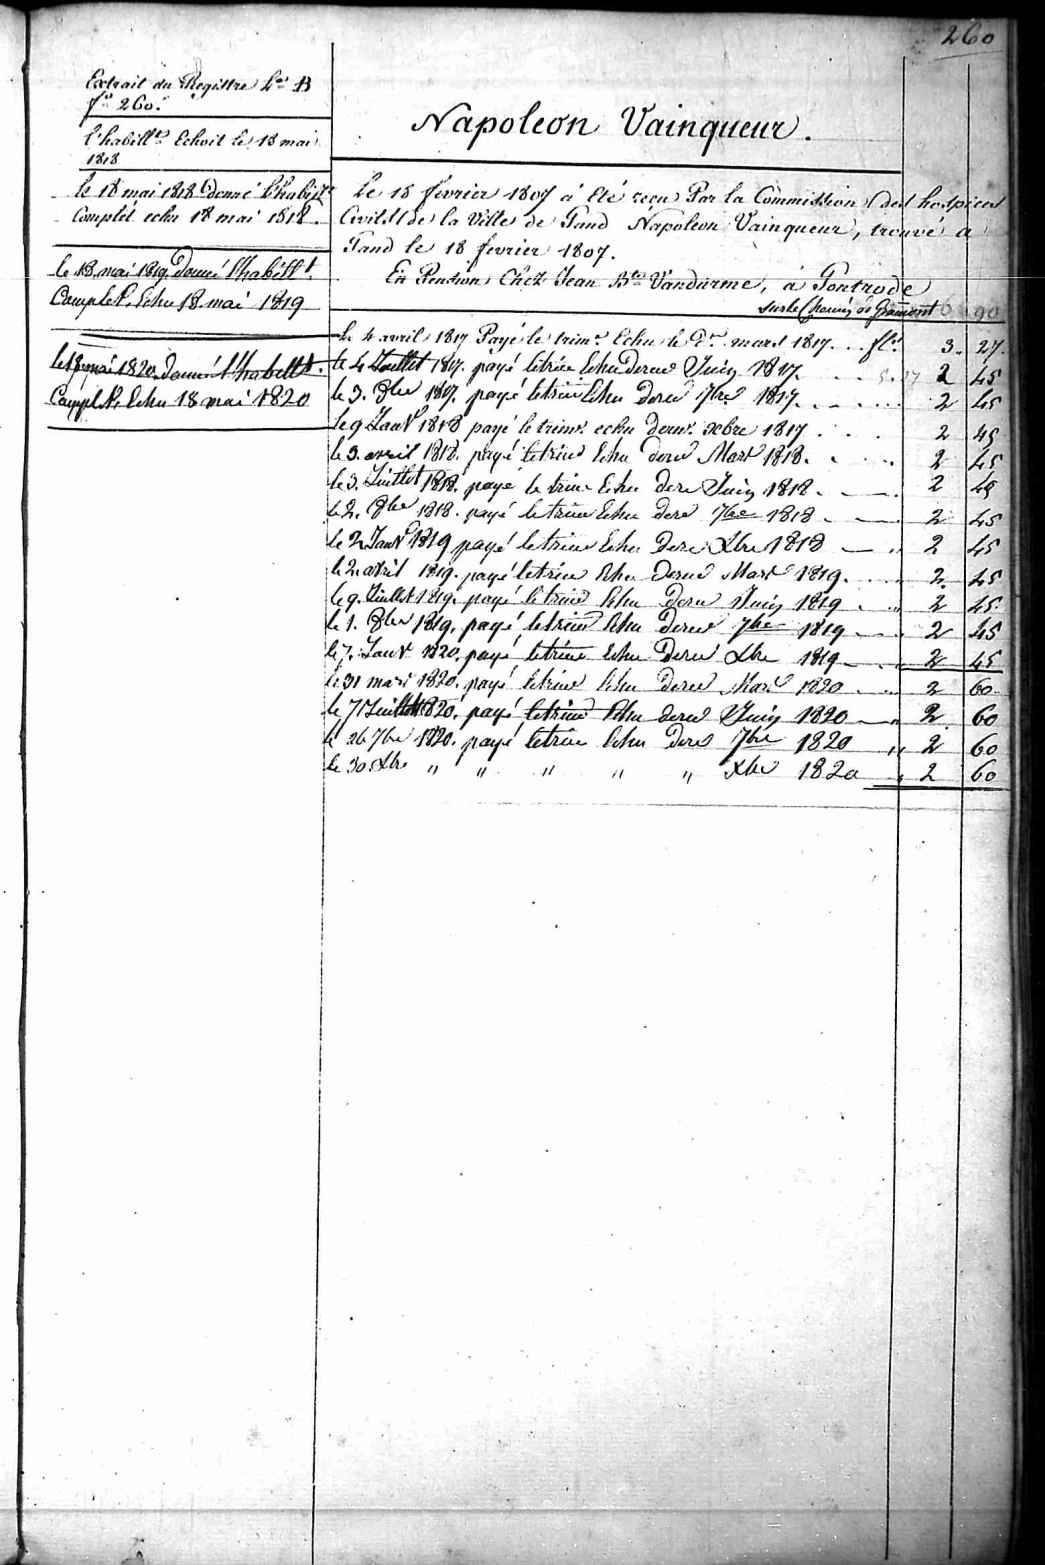 260
Extrait du Registre Lra B
fo 260.
l'habillt Echoit le 18 mai
1818
le 18 mai 1818 donné l'habillt
Complet echu 18 mai 1818.
le 18 mai 1819 Donné l'habillt.
Complet. Echu 18 mai 1819
le 18 mai 1820 Donné l'habillt.
Complet. Echu 18 mai 1820
Napoleon Vainqueur.
Le 18 février 1807 à Eté reçu Par la Commission des hospices
Civils de la Ville de Gand Napoleon Vainqueur, trouvé à
Gand le 18 fevrier 1807.
En Pension Chez Jean Bte Vandurme, à Gontrode
sur le Chemin de Gramont 90
Le 4 avril 1817 Payé le trim. Echu le Dr mars 1817 . . . fls 3. 27.
le 4 Juillet 1817. payé letrim Echu Derne Juin 1817. 5.27 2 45
le 3. 8bre 1817. payé letrim Echu derne 7bre 1817 2 45
le 9 Janvr 1818 payé le trimr. echu dernr. xbre 1817 2 45
le 3. avril 1818. payé letrim Echu derne Mars 1818. 2 45
le 3. Juillet 1818. payé le trim Echu dere Juin 1818. 2 45
le 2. 8bre 1818. payé letrim Echu dere 7bre 1818 2 45
le 2 Janvr 1819 payé letrim Echu dere Xbre 1818 2 45
le 2 avril 1819. payé letrim Echu derne Mars 1819. 2 45
le 9. Juillet 1819. payé letrim Echu derne Juin 1819 2 45
le 1. 8bre 1819. payé letrim Echu derne 7bre 1819 2 45
le 7. Janvr 1820. payé letrim Echu derne Xbre 1819 2 45
le 31 mars 1820. payé letrim Echu derne Mars 1820 2 60
le 7 Juillet 1820. payé letrim Echu derne Juin 1820 2 60
le 26 7bre 1820. payé letrim Echu dere 7bre 1820 " 2 60
le 30 Xbre " " " " " Xbre 1820 2 60